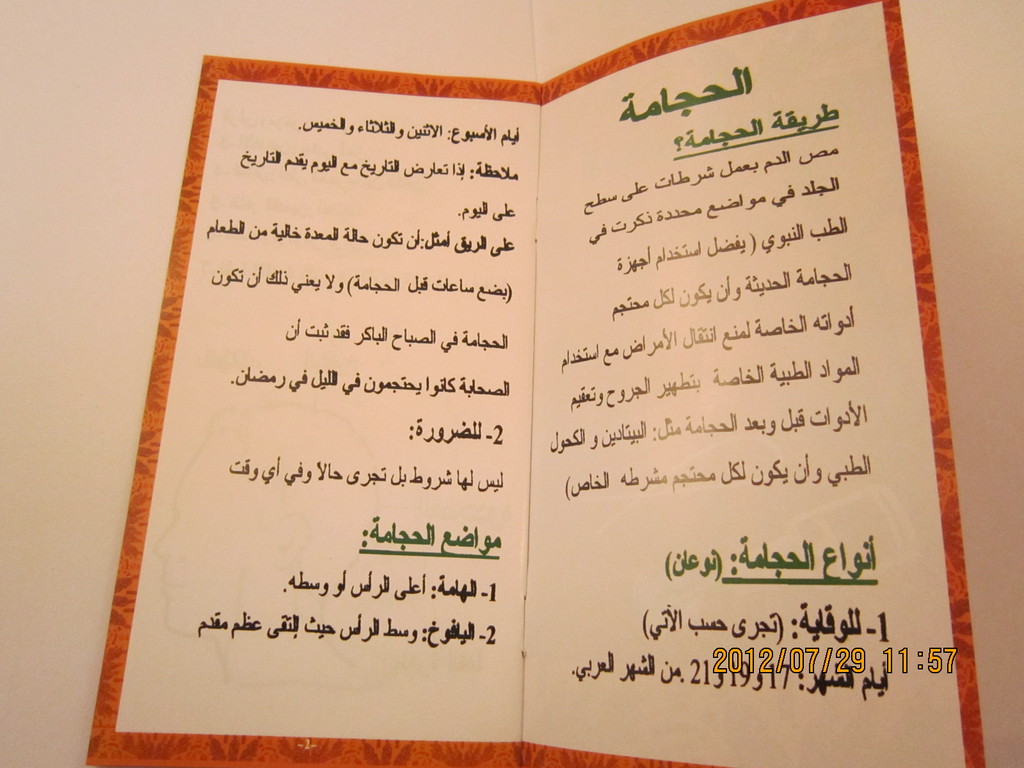 الحجامة
طريقة الحجامة؟
مص الدم بعمل شرطات على سطح
الجلد في مواضع محددة ذكرت في
الطب النبوي ( يفضل استخدام أجهزة
الحجامة الحديثة وأن يكون لكل محتجم
أدواته الخاصة لمنع انتقال الأمراض مع استخدام
المواد الطبية الخاصة بتطهير الجروح وتعقيم
الأدوات قبل وبعد الحجامة مثل: البيتادين و الكحول
الطبي وأن يكون لكل محتجم مشرطه الخاص)
أنواع الحجامة: (نوعان)
1- للوقاية: (تجرى حسب الآتي)
أيام الشهر: 17 و19 و21 .من الشهر العربي.
2012/07/29 11:57
أيام الأسبوع: الاثنين والثلاثاء والخميس.
ملاحظة: إذا تعارض التاريخ مع اليوم يقدم التاريخ
على اليوم.
على الريق أمثل:أن تكون حالة المعدة خالية من الطعام
(بضع ساعات قبل الحجامة) ولا يعني ذلك أن تكون
الحجامة في الصباح الباكر فقد ثبت أن
الصحابة كانوا يحتجمون في الليل في رمضان.
2- للضرورة:
ليس لها شروط بل تجرى حالا وفي أي وقت
مواضع الحجامة:
1- الهامة: أعلى الرأس أو وسطه.
2- اليافوخ: وسط الرأس حيث إلتقى عظم مقدم
-2-